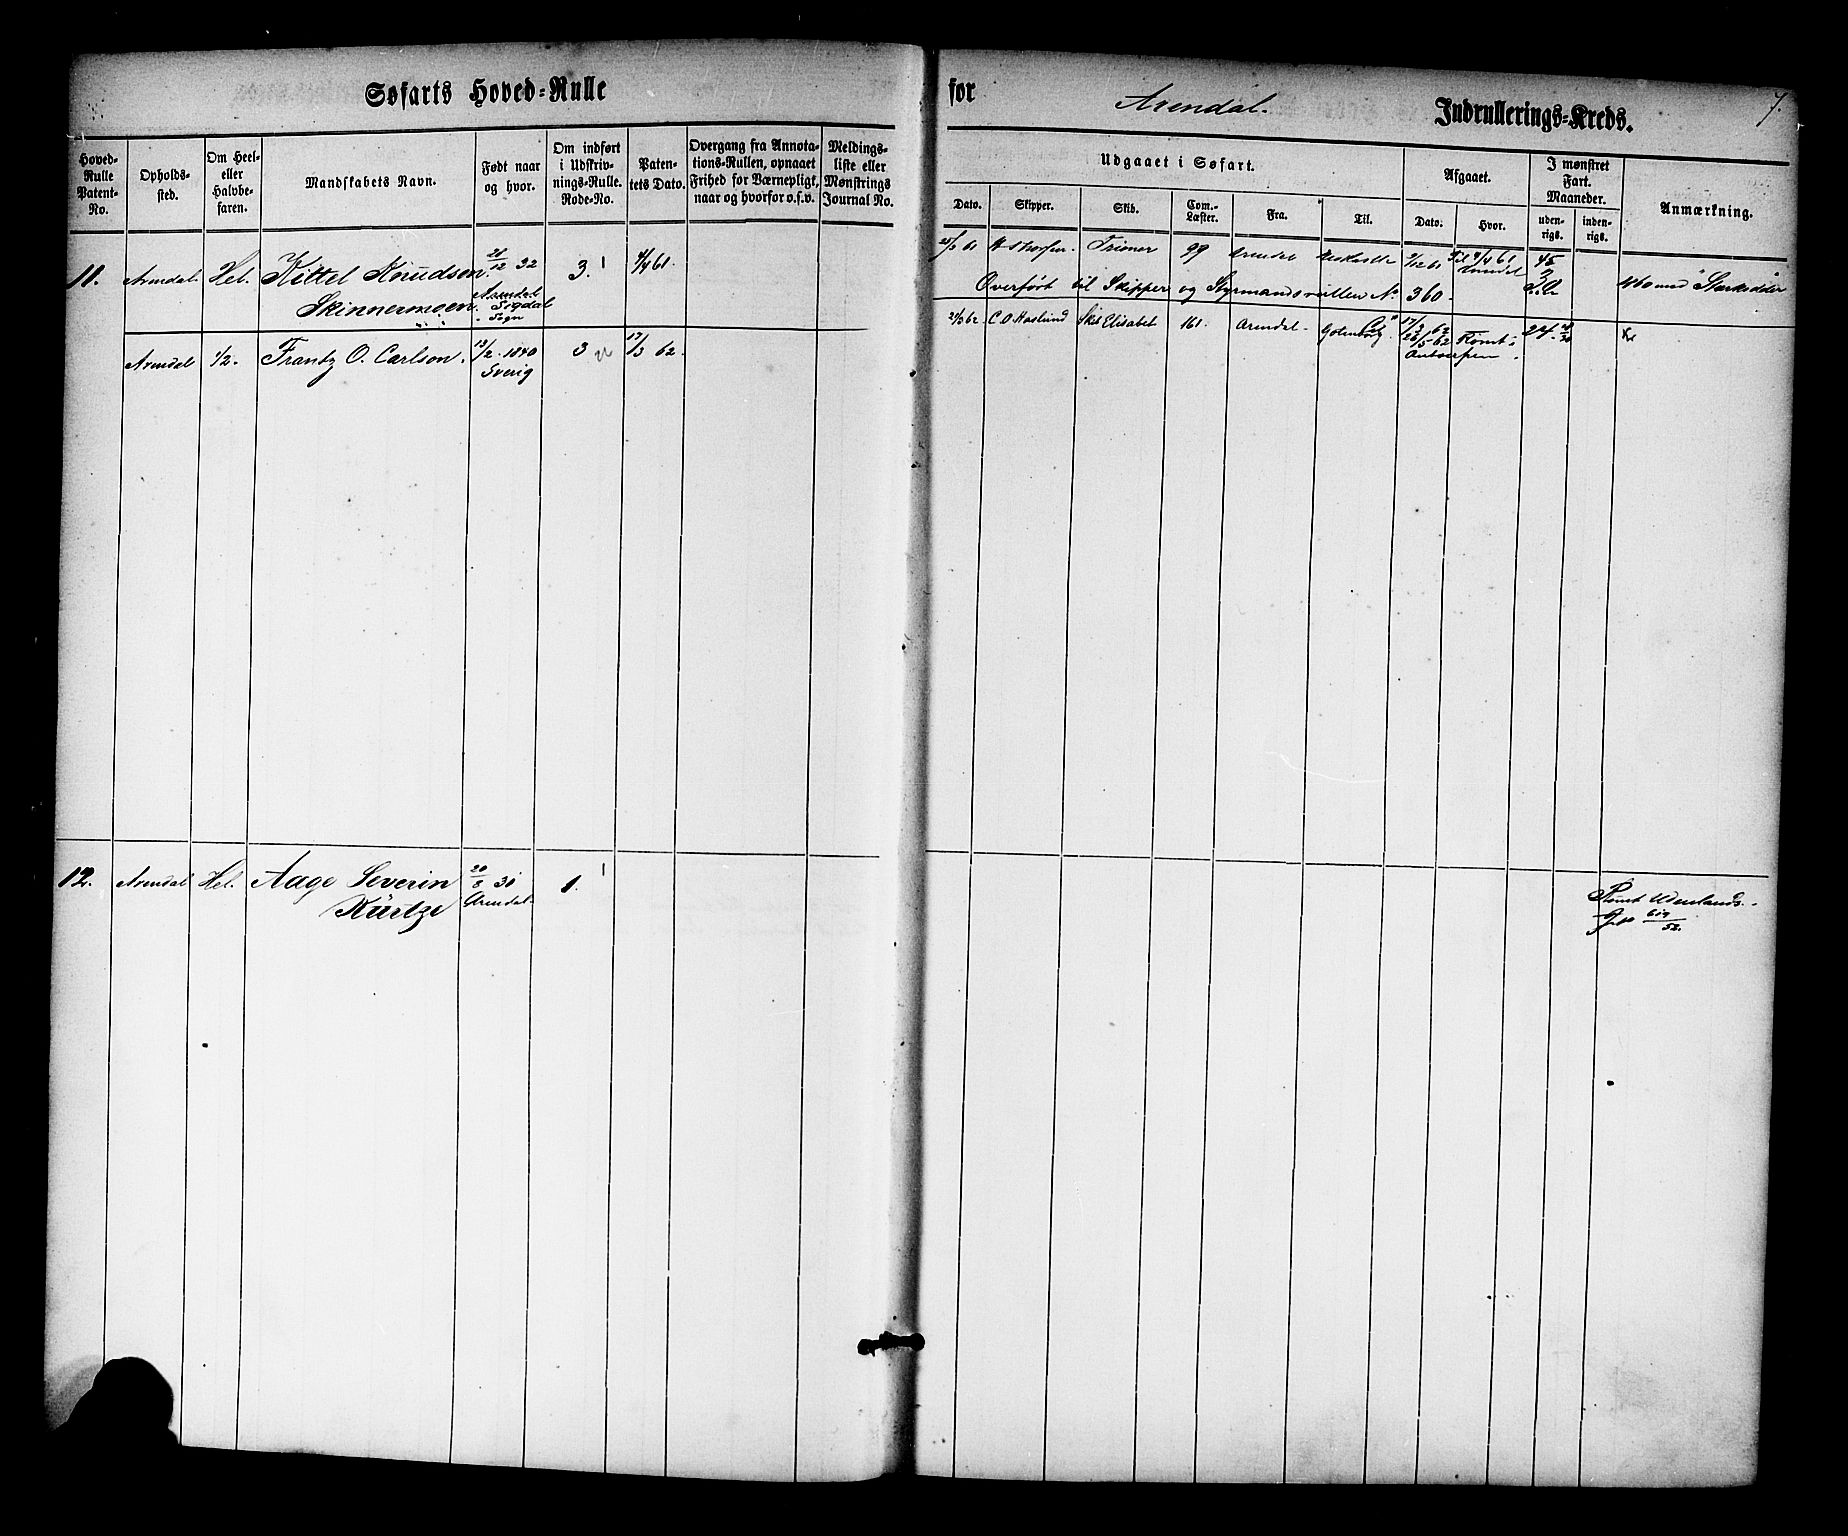 Søfarts Hoved-Rulle
for Arendal. Indrullerings-Kreds. 7.
Hoved-Rulle Patent-No.
Opholds-sted.
Om Heel- eller Halvbe-faren.
Mandskabets Navn.
Født naar og hvor.
Om indført i Udskriv-nings-Rulle. Rode-No.
Paten-tets Dato.
Overgang fra Annota-tions-Rullen, opnaaet Frihed for Værnepligt, naar og hvorfor o.s.v.
Meldings-liste eller Mønstrings Journal No.
Udgaaet i Søfart.
Dato. Skipper. Skib. Com. Læster. Fra. Til.
Afgaaet.
Dato. Hvor.
I mønstret Fart. Maaneder.
uden-rigs. inden-rigs.
Anmærkning.
11. Arendal Hel. Kittel Knudsen 21/12 32 3. 1 4/4 61.
Skinnermoen. Arendal Sogdal Sogn
99 Arendal
Overført til Skipper og Styrmandsrullen No. 360.
Arendal 1/2. Frantz O. Carlson. 13/2 1840 3 17/3 62.
Sverig
21/3 62 C.O. Haslund Skb Elisabet 161. Arendal 17/3 62 24
26/5 62 Rømt i
Antwerpen
12. Arendal Hel. Aage Severin 20/8 31 1. 1
Kürtze Arendal
Rømt Udenlands.